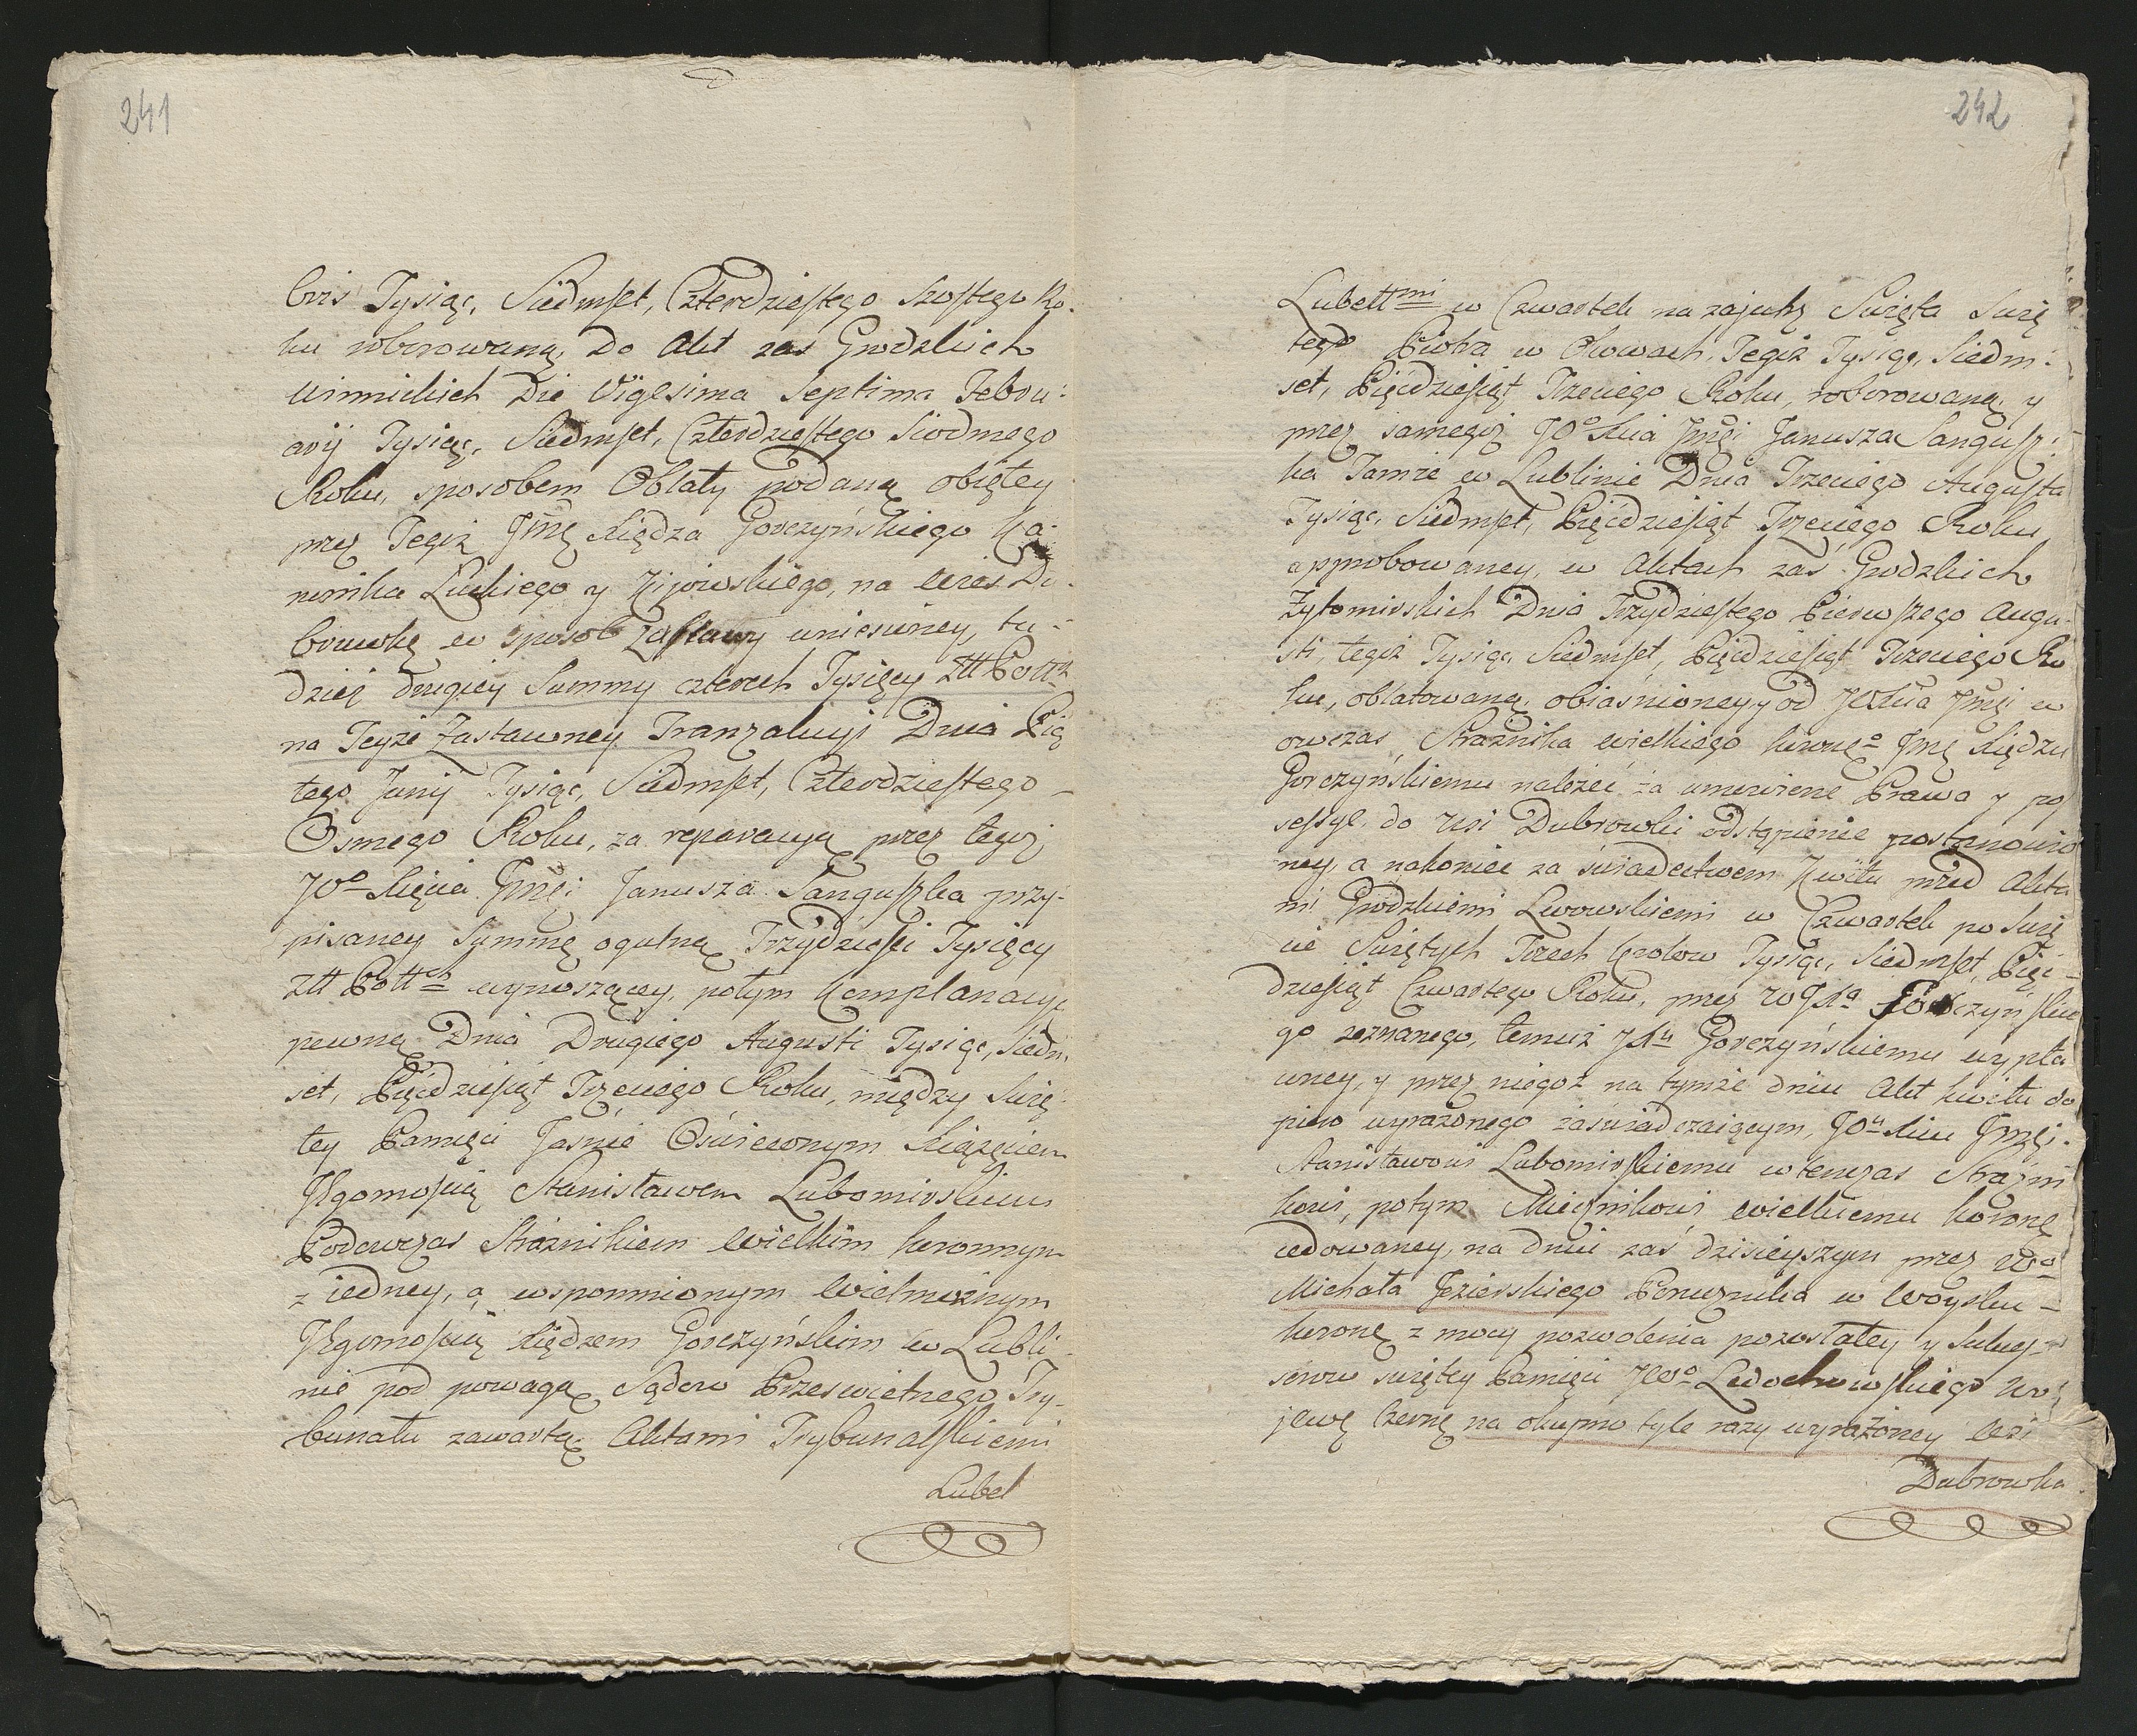 241
bris Tysiąc, Siedmset, Czterdziestego Szostego Ro-
ku roborowaną, do Akt zas Grodzkich
Winnickich Die Vigesima Septima Febru:
arij Tysiąc, Siedmset, Czterdziestego Siodmego
Roku, sposobem Oblaty podaną obiętey
przez Tegoż Jmę Xiędza Gorczyńskiego Ka-
nonika Łuckiego y Kijowskiego, na wieś Du-
browkę w sposob Zastawy wniesioney, tu-
dzież drugiey Summy czterech Tysięcy Złł Pollch
na Teyże Zastawney Tranzakcyi Dnia Pią
tego Junij Tysiąc, Siedmset, Czterdziestego –
Osmego Roku, za reparacyą przez tegoż
JO° Xięcia Jmći Janusza Sanguszka przy-
pisaney Summę ogulną Trzydzieści Tysięcy
Złł Pollch wynoszącey, potym Komplanacyą
pewną Dnia Drugiego Augusti Tysiąc, Siedm
set, Pięćdziesiąt Trzeciego Roku, między Swię
tey Pamięci Jaśnie Oświeconym Xiążęciem
Jegomością Stanisławem Lubomirskim
Podowczas Strażnikiem Wielkim koronnym
z iedney, a wspomnionym Wielmożnym
Jegomością Xiędzem Gorczyńskim w Lubli-
nie pod powagą Sądow Prześwietnego Try-
bunału zawartą, Aktami Trybunalskiemi
Lubel
242
Lubellmi w Czwartek nazajutrz Swięta Swię
tego Piotra w Okowach, Tegoż Tysiąc, Siedm:
set, Pięćdziesiąt Trzeciego Roku, roborowaną, y
przez samegoż JO° Xcia Jmći Janusza Sangusz:
ka Tamże w Lublinie Dnia Trzeciego Augusta
Tysiąc, Siedmset, Pięćdziesiąt Trzeciego Roku
approbowaney, w Aktach zaś Grodzkich
Żytomirskich Dnia Trzydziestego Pierwszego Augu-
sti, tegoż Tysiąc, Siedmset, Pięćdziesiąt Trzeciego Ro
ku, oblatowaną, obiaśnioney, y od JOXcia Jmći w
owczas Strażnika wielkiego koronę° Jmę Xiędzu
Gorczyńskiemu należeć za umowione Prawa y po
sessye, do Wsi Dubrowki odstąpienie postanowio
ney, a nakoniec za świadectwem Kwitu przed Akta
mi Grodzkiemi Lwowskiemi w Czwartek po Swię
cie Swiętych Trzech Krolow Tysiąc, Siedmset, Pięć-
dziesiąt Czwartego Roku, przez WJXa Gorczyńskie
go zeznanego, temuż JXu Gorczyńskiemu wypła
coney, y przez niegoż na tymże dniu Akt kwitu do
piero wyrażonego zaświadczaiącym, JOu Xciu Jmći.
Stanisławowi Lubomirskiemu w tenczas Strażni
kowi, potym Miecznikowi wielkiemu koronę
cedowaney, na dniu zaś dzisieyszym przez Wo
Michała Jezierskiego Porucznika w Woysku –
koronę z mocy pozwolenia pozostałey y Sukces-
sorow swiętey Pamięci JWo Ledochowskiego Wo:
jewę Czernę na okupno tyle razy wyrażoney wsi
Dubrowka